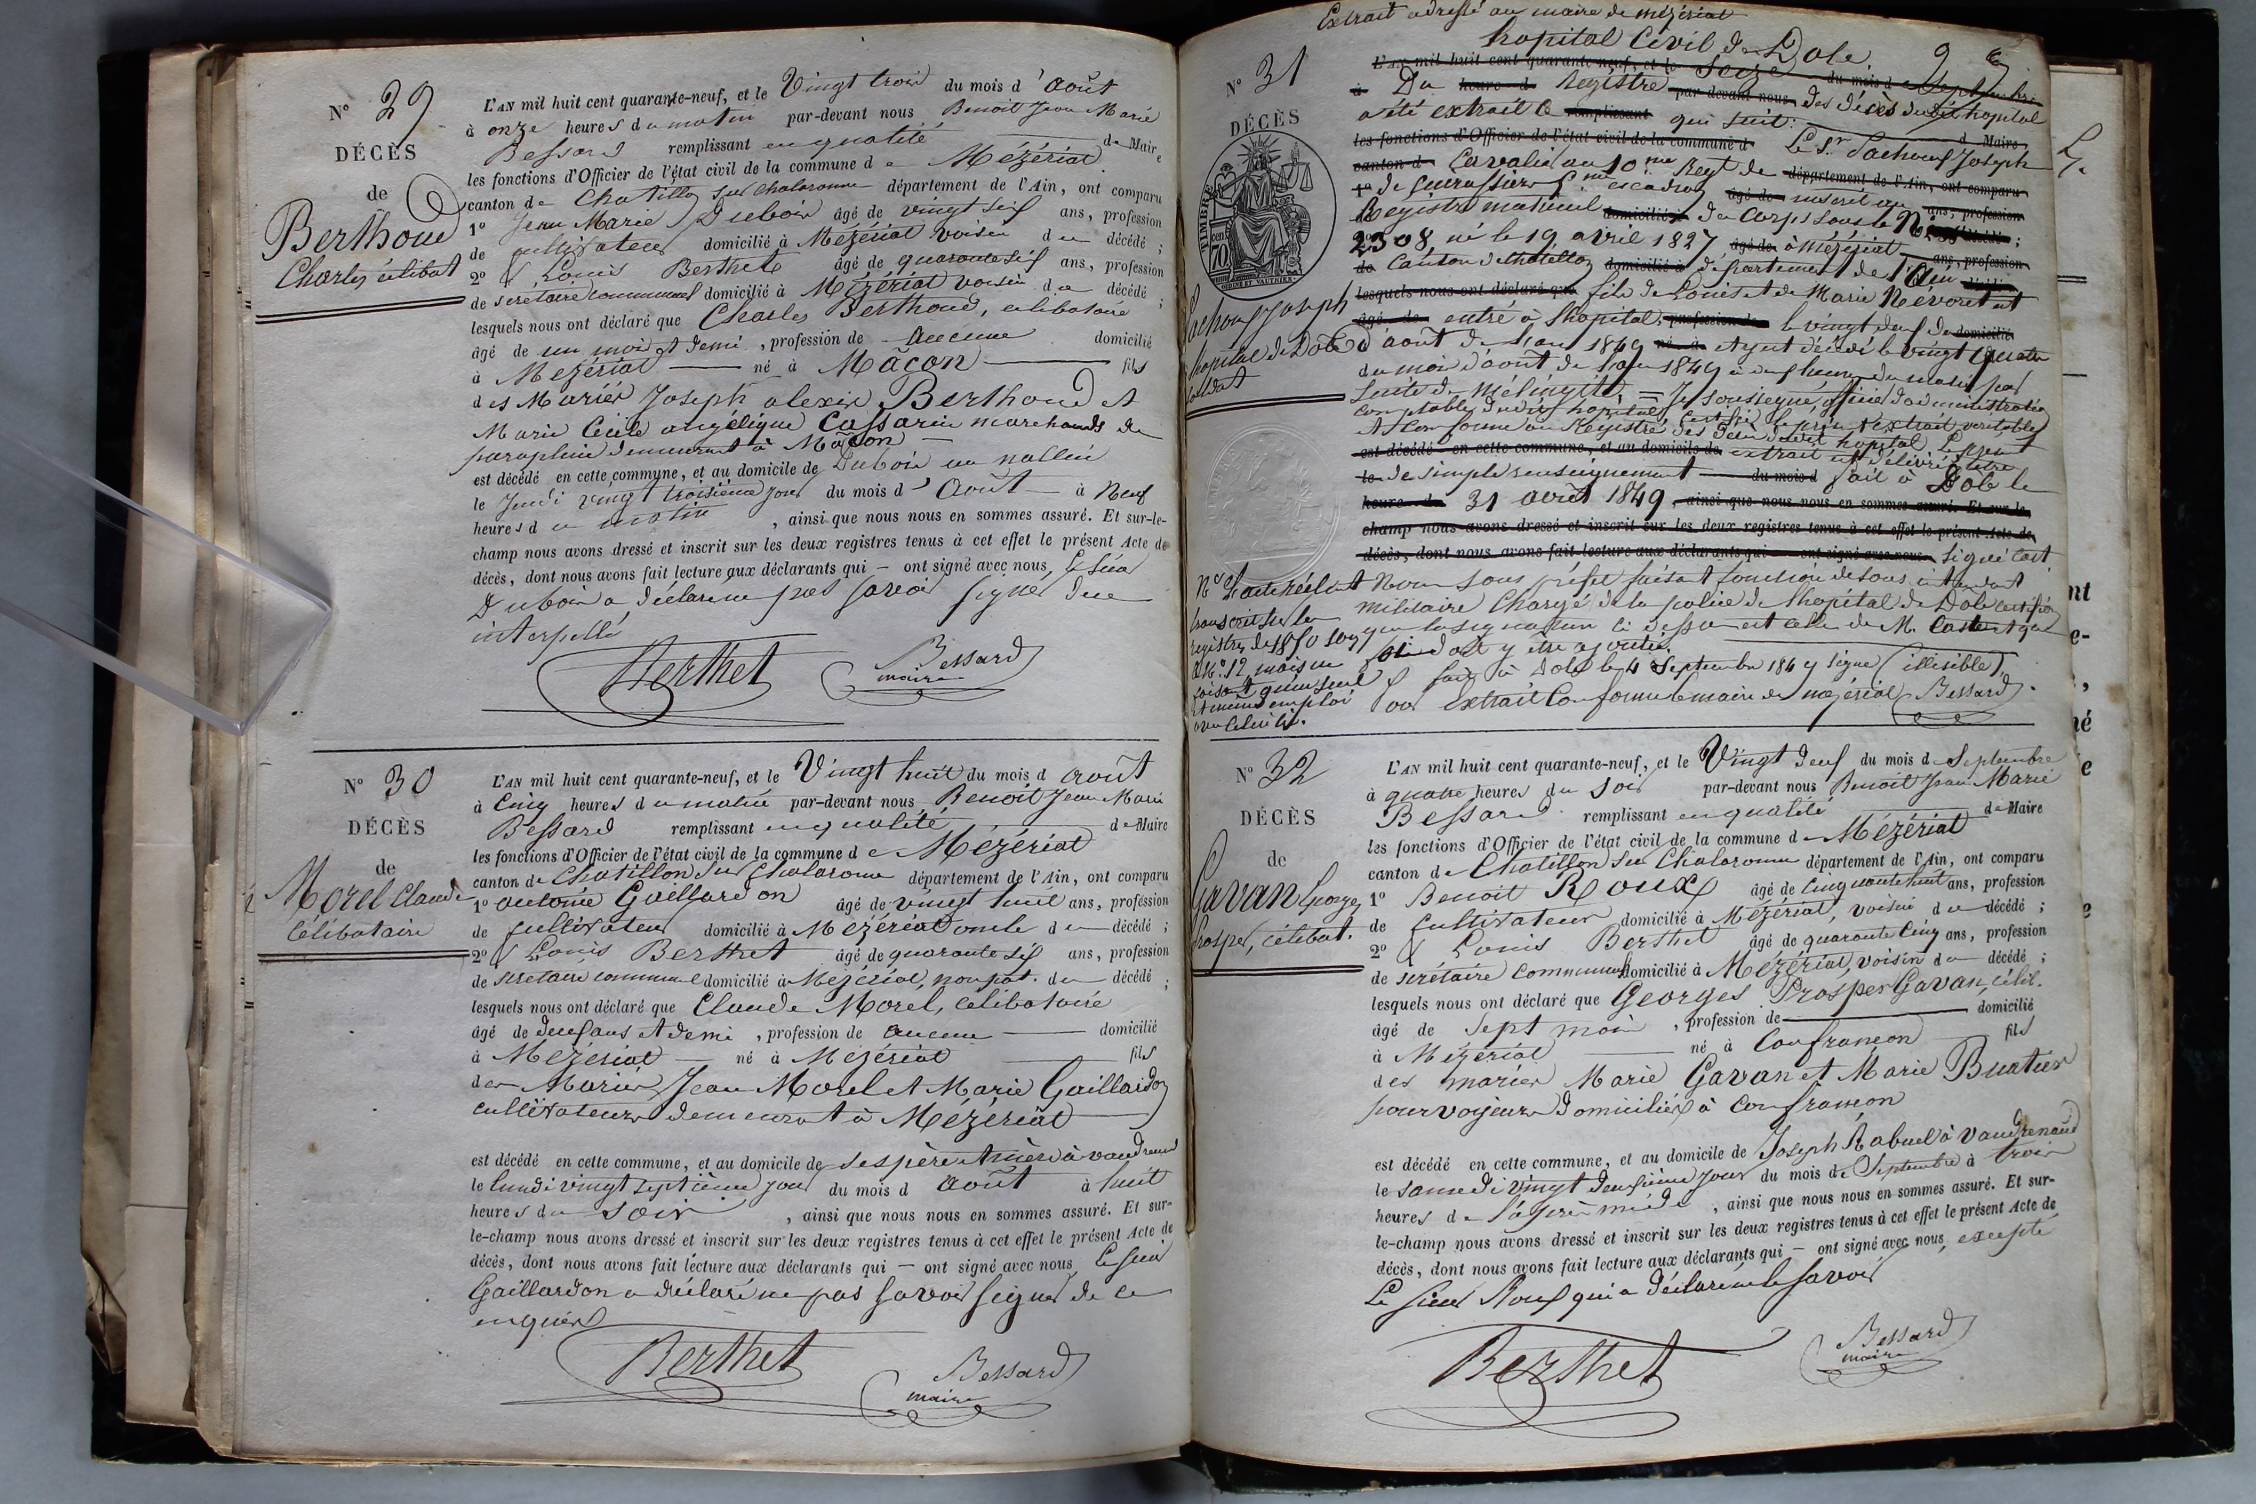 N° 29
DÉCÈS
de
Berthoud
Charles célibat
L'AN mil huit cent quarante-neuf, et le Vingt trois du mois d'août
à onze heures du matin par-devant nous Benoit Jean Marie
Bessard remplissant en qualité de Maire
les fonctions d'Officier de l'état civil de la commune de Mézériat
canton de Chatillon sur Chalaronne département de l'Ain, ont comparu
1° Jean Marie Dubois âgé de vingt six ans, profession
de cultivateur domicilié à Mézériat voisin du décédé ;
2° & Louis Berthet âgé de quarante six ans, profession
de secrétaire communal domicilié à Mézériat voisin du décédé ;
lesquels nous ont déclaré que Charles Berthoud, célibataire
âgé de un mois et demi , profession de aucune domicilié
à Mézériat né à Mâcon fils
des Mariés Joseph alexis Berthoud et
Marie Cécile angélique Cassarin marchands de
parapluie demeurant à Mâcon
est décédé en cette commune, et au domicile de Dubois
le Jeudi vingt troisième jour du mois d'Août à Neuf
heures du matin , ainsi que nous nous en sommes assuré. Et sur-le-
champ nous avons dressé et inscrit sur les deux registres tenus à cet effet le présent Acte de
décès, dont nous avons fait lecture aux déclarants qui – ont signé avec nous, le sieur
Dubois a déclaré ne pas savoir signer de ce
interpellé
Berthet Bessard
maire
N° 30
DÉCÈS
de
Morel Claude
Célibataire
L'AN mil huit cent quarante-neuf, et le Vingt huit du mois d août
à Cinq heures du matin par-devant nous Benoit Jean Marie
Bessard remplissant en qualité de Maire
les fonctions d'Officier de l'état civil de la commune de Mézériat
canton de Chatillon sur Chalaronne département de l'Ain, ont comparu
1° antoine Gaillardon âgé de vingt huit ans, profession
de cultivateur domicilié à Mézériat oncle du décédé ;
2° & Louis Berthet âgé de quarante six ans, profession
de secretaire communal domicilié à Mézériat, non par. du décédé ;
lesquels nous ont déclaré que Claude Morel, célibataire
âgé de deux ans et demi , profession de aucune domicilié
à Mézériat né à Mézériat fils
des Mariés Jean Morel et Marie Gaillardon
cultivateurs demeurant à Mézériat
est décédé en cette commune, et au domicile de ses père et mère à vaudrenaud
le lundi vingt septième jour du mois d août à huit
heures du soir , ainsi que nous nous en sommes assuré. Et sur-
le-champ nous avons dressé et inscrit sur les deux registres tenus à cet effet le présent Acte de
décès, dont nous avons fait lecture aux déclarants qui – ont signé avec nous, le sieur
Gaillardon a déclaré ne pas savoir signer de ce
enquis
Berthet Bessard
maire
Extrait adressé au maire de mézériat
hopital Civil de Dole
N° 31
DÉCÈS
TIMBRE
70
L'AN mil huit cent quarante-neuf, et le Seize du mois de Septembre
à Du heure d Registre par-devant nous des décès dudit hopital
a été extrait ce remplissant qui suit: de Maire
les fonctions d'Officier de l'état civil de la commune d Le Sr Joseph
canton de Cavalier au 10me Regt de département de l'Ain, ont comparu
1° de Cuirassiers escadron âgé de inscrit au ans, profession
Registre matricule domicilié à du Corps sous le N°
2308, né le 19 avril 1827 âgé de à Mézériat ans, profession
de Canton de Chatillon domicilié à département de l'Ain
lesquels nous ont déclaré que fils de Louis et de Marie Nevoret est
âgé de entré à l'hopital, profession de le vingt deux de domicilié
d'août de l'an 1849 né à et y est décédé le vingt quatre
du mois d'août de l'an 1849 à heures du matin par
suite de Méningite = Je soussigné, officier d'administration
comptable dudit hopital Certifie le présent extrait véritable
et conforme au Registre des décès dudit hopital, le présent
est décédé en cette commune, et au domicile de extrait est délivré à titre
le de simple renseignement du mois d fait à Dole le
heure de 31 août 1849, ainsi que nous nous en sommes assuré. Et sur-le-
champ nous avons dressé et inscrit sur les deux registres tenus à cet effet le présent Acte de
décès, dont nous avons fait lecture aux déclarants qui ont signé avec nous signé
Nous sous préfet faisant fonction de sous intendant
militaire Chargé de la police de l'hopital de Dole certifions
que la signature ci dessus est celle de M. et que
foi doit y être ajoutée.
fait à Dole le 4 Septembre 1849 signé (illisible)
Pour extrait Conforme le maire de mézériat Bessard
Joseph
hopital de Dole
soldat
transcrit sur les
registres de 1850 sous
le N° 12 mais ne
faisant qu'un seul
et même emploi
avec celui ci.
N° 32
DÉCÈS
de
Gavan George
Prosper, célibat.
L'AN mil huit cent quarante-neuf, et le Vingt deux du mois de Septembre
à quatre heures du soir par-devant nous Benoit Jean Marie
Bessard remplissant en qualité de Maire
les fonctions d'Officier de l'état civil de la commune de Mézériat
canton de Chatillon sur Chalaronne département de l'Ain, ont comparu
1° Benoit Roux âgé de Cinquante huit ans, profession
de cultivateur domicilié à Mézériat, voisin du décédé ;
2° & Louis Berthet âgé de quarante cinq ans, profession
de secrétaire communal domicilié à Mézériat, voisin du décédé ;
lesquels nous ont déclaré que Georges Prosper Gavan, célib.
âgé de sept mois , profession de domicilié
à Mézériat né à Confrançon fils
des mariés Marie Gavan et Marie Buatier
pourvoyeurs domiciliés à Confrançon
est décédé en cette commune, et au domicile de Joseph Rabuel à vaudrenaud
le samedi vingt deuxième jour du mois de Septembre à trois
heures de l'après midi , ainsi que nous nous en sommes assuré. Et sur-
le-champ nous avons dressé et inscrit sur les deux registres tenus à cet effet le présent Acte de
décès, dont nous avons fait lecture aux déclarants qui – ont signé avec nous, excepté
Le sieur Roux qui a déclaré ne le savoir
Berthet Bessard
maire